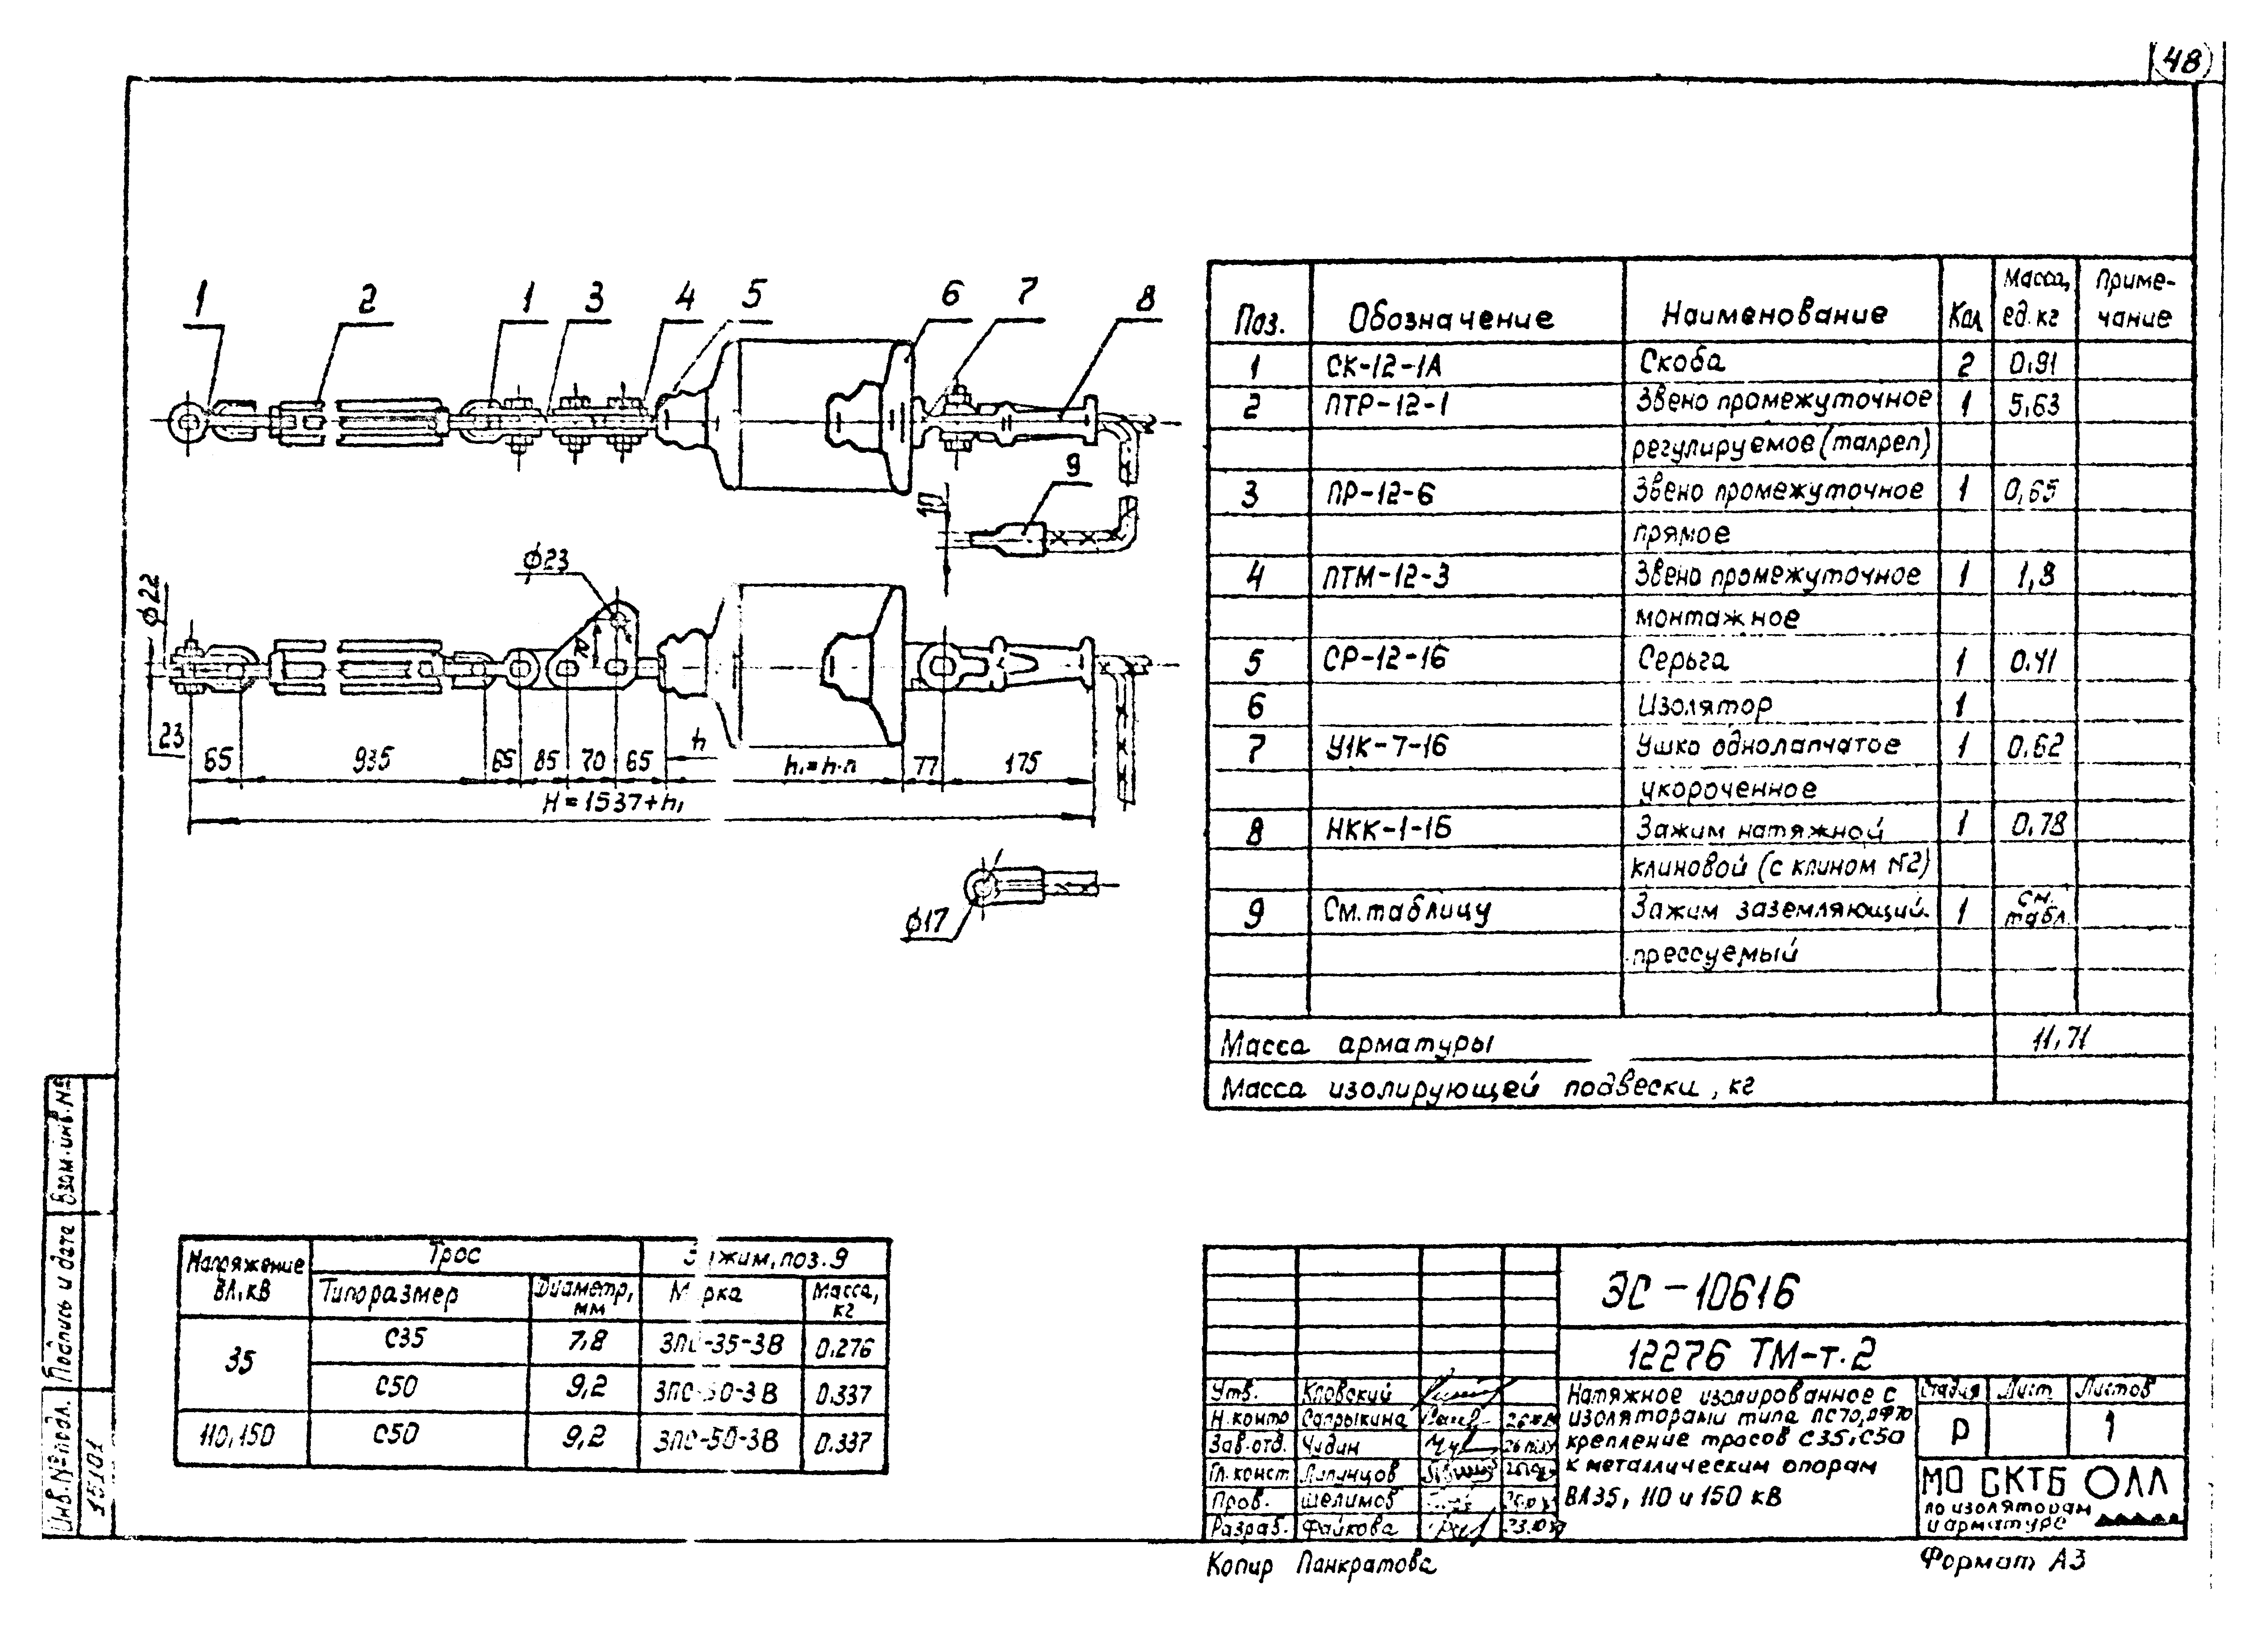 48
1
2
1
3
4
5
6
7
8
9
10
ϕ23
ϕ22
70
23
65
935
65
85
70
65
h
h₁=h·n
77
175
H=1537+h₁
ϕ17
Поз. Обозначение Наименование Кол Масса, ед. кг Приме-чание
1 СК-12-1А Скоба 2 0,91
2 ПТР-12-1 Звено промежуточное 1 5,63
регулируемое (талреп)
3 ПР-12-6 Звено промежуточное 1 0,65
прямое
4 ПТМ-12-3 Звено промежуточное 1 1,8
монтажное
5 СР-12-16 Серьга 1 0,41
6 Изолятор 1
7 У1К-7-16 Ушко однолапчатое 1 0,62
укороченное
8 НКК-1-1Б Зажим натяжной 1 0,78
клиновой (с клином №2)
9 См. таблицу Зажим заземляющий 1 См. табл.
прессуемый
Масса арматуры 11,71
Масса изолирующей подвески, кг
Напряжение ВЛ, кВ Трос Зажим, поз. 9
Типоразмер Диаметр, мм Марка Масса, кг
35 С35 7,8 ЗПС-35-3В 0,276
С50 9,2 ЗПС-50-3В 0,337
110,150 С50 9,2 ЗПС-50-3В 0,337
Взам. инв. №
Подпись и дата
Инв. № подл.
15101
ЭС-10616
12276 ТМ-т.2
Утв. Кловский
Н. контр Сапрыкина
Зав. отд. Чудин
Гл. конст Липунцов
Пров. Шелимов
Разраб. Файкова
Натяжное изолированное с
изоляторами типа ПС70, ПФ70
крепление тросов С35, С50
к металлическим опорам
ВЛ35, 110 и 150 кВ
Стадия Лист Листов
Р 1
МО СКТБ
по изоляторам
и арматуре
Копир Панкратова
Формат А3